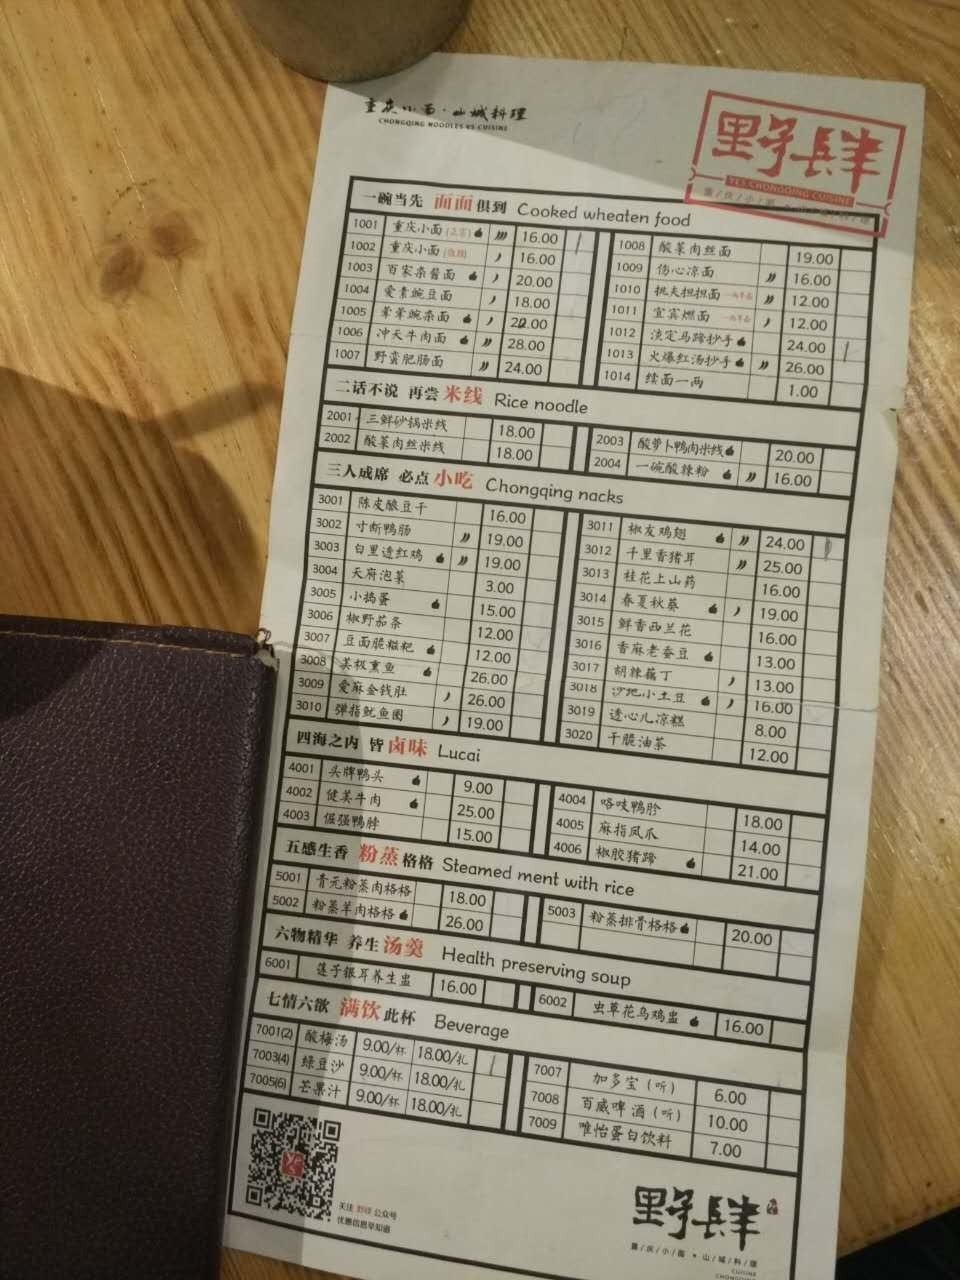 重庆小面·山城料理
CHONGQING NOODLES YS CUISINE
野肆
YES CHONGQING CUISINE
一碗当先 面面俱到 Cooked wheaten food
1001 重庆小面(正宗) 16.00
1002 重庆小面(微辣) 16.00
1003 百家杂酱面 20.00
1004 爱素豌豆面 18.00
1005 荤荤豌杂面 22.00
1006 冲天牛肉面 28.00
1007 野蛮肥肠面 24.00
1008 酸菜肉丝面 19.00
1009 伤心凉面 16.00
1010 挑夫担担面 12.00
1011 宜宾燃面 12.00
1012 淡定马蹄抄手 24.00
1013 火爆红汤抄手 26.00
1014 续面一两 1.00
二话不说 再尝米线 Rice noodle
2001 三鲜砂锅米线 18.00
2002 酸菜肉丝米线 18.00
2003 酸萝卜鸭肉米线 20.00
2004 一碗酸辣粉 16.00
三人成席 必点小吃 Chongqing nacks
3001 陈皮酿豆干 16.00
3002 寸断鸭肠 19.00
3003 白里透红鸡 19.00
3004 天府泡菜 3.00
3005 小捣蛋 15.00
3006 椒野茄条 12.00
3007 豆面脆糍粑 12.00
3008 美极熏鱼 26.00
3009 爱麻金钱肚 26.00
3010 弹指鱿鱼圈 19.00
3011 椒友鸡翅 24.00
3012 千里香猪耳 25.00
3013 桂花上山药 16.00
3014 春夏秋葵 19.00
3015 鲜香西兰花 16.00
3016 香麻老蚕豆 13.00
3017 胡辣藕丁 13.00
3018 沙地小土豆 16.00
3019 透心儿凉糕 8.00
3020 干脆油茶 12.00
四海之内 皆卤味 Lucai
4001 头牌鸭头 9.00
4002 健美牛肉 25.00
4003 倔强鸭脖 15.00
4004 咯吱鸭肫 18.00
4005 麻指凤爪 14.00
4006 椒胶猪蹄 21.00
五感生香 粉蒸格格 Steamed ment with rice
5001 青元粉蒸肉格格 18.00
5002 粉蒸羊肉格格 26.00
5003 粉蒸排骨格格 20.00
六物精华 养生汤羹 Health preserving soup
6001 莲子银耳养生盅 16.00
6002 虫草花乌鸡盅 16.00
七情六欲 满饮此杯 Beverage
7001(2) 酸梅汤 9.00/杯 18.00/扎
7003(4) 绿豆沙 9.00/杯 18.00/扎
7005(6) 芒果汁 9.00/杯 18.00/扎
7007 加多宝(听) 6.00
7008 百威啤酒(听) 10.00
7009 唯怡蛋白饮料 7.00
关注 野肆 公众号
优惠信息早知道
野肆
重/庆/小/面 • 山/城/料/理
CUISINE